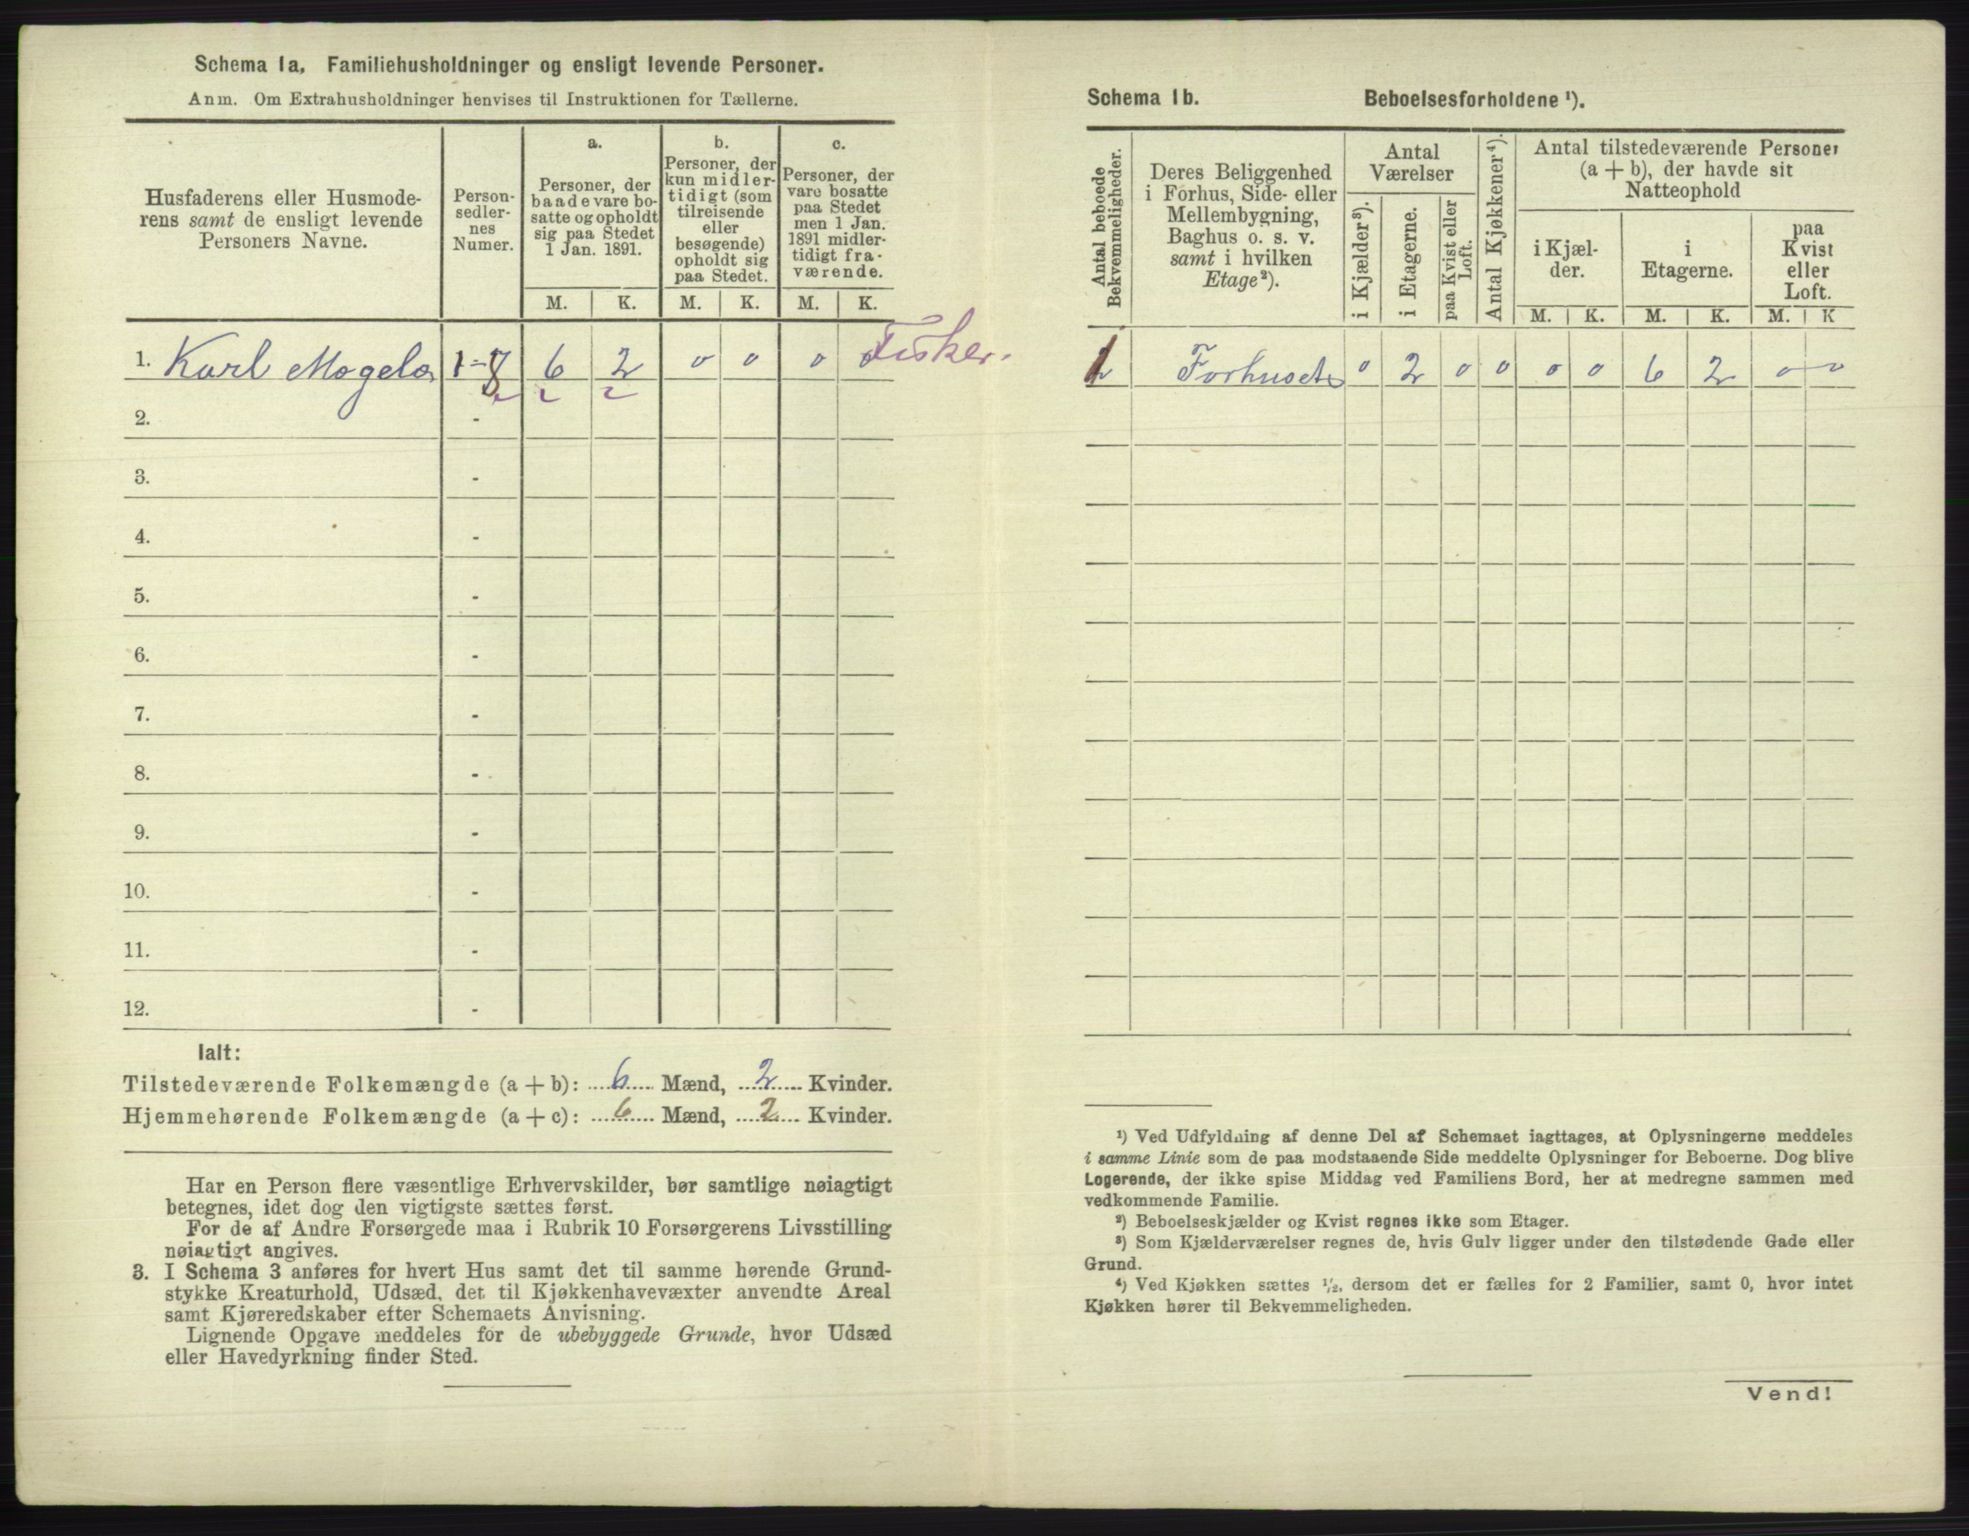 Schema 1a. Familiehusholdninger og ensligt levende Personer.
Anm. Om Extrahusholdninger henvises til Instruktionen for Tællerne.
Husfaderens eller Husmode-
rens samt de ensligt levende
Personers Navne.
Person-
sedler-
nes
Numer.
a.
Personer, der
baade vare bo-
satte og opholdt
sig paa Stedet
1 Jan. 1891.
b.
Personer, der
kun midler-
tidigt (som
tilreisende
eller
besøgende)
opholdt sig
paa Stedet.
c.
Personer, der
vare bosatte
paa Stedet
men 1 Jan.
1891 midler-
tidigt fra-
værende.
M. K. M. K. M. K.
1. Karl 1 - 8 6 2 0 0 0 0 Fisker.
2. -
3. -
4. -
5. -
6. -
7. -
8. -
9. -
10. -
11. -
12. -
Ialt:
Tilstedeværende Folkemængde (a + b): 6 Mænd, 2 Kvinder.
Hjemmehørende Folkemængde (a + c): 6 Mænd, 2 Kvinder.
Har en Person flere væsentlige Erhvervskilder, bør samtlige nøiagtigt
betegnes, idet dog den vigtigste sættes først.
For de af Andre Forsørgede maa i Rubrik 10 Forsørgerens Livsstilling
nøiagtigt angives.
3. I Schema 3 anføres for hvert Hus samt det til samme hørende Grund-
stykke Kreaturhold, Udsæd, det til Kjøkkenhavevæxter anvendte Areal
samt Kjøreredskaber efter Schemaets Anvisning.
Lignende Opgave meddeles for de ubebyggede Grunde, hvor Udsæd
eller Havedyrkning finder Sted.
Schema 1b. Beboelsesforholdene ¹).
Antal beboede
Bekvemmeligheder.
Deres Beliggenhed
i Forhus, Side- eller
Mellembygning,
Baghus o. s. v.
samt i hvilken
Etage²).
Antal
Værelser
i Kjælder³).
i Etagerne.
paa Kvist eller
Loft.
Antal Kjøkkener⁴).
Antal tilstedeværende Personer
(a + b), der havde sit
Natteophold
i Kjæl-
der.
i
Etagerne.
paa
Kvist
eller
Loft.
M. K. M. K. M. K
1 Forhuset 0 2 0 0 0 0 6 2 0 0
¹) Ved Udfyldning af denne Del af Schemaet iagttages, at Oplysningerne meddeles
i samme Linie som de paa modstaaende Side meddelte Oplysninger for Beboerne. Dog blive
Logerende, der ikke spise Middag ved Familiens Bord, her at medregne sammen med
vedkommende Familie.
²) Beboelseskjælder og Kvist regnes ikke som Etager.
³) Som Kjælderværelser regnes de, hvis Gulv ligger under den tilstødende Gade eller
Grund.
⁴) Ved Kjøkken sættes ½, dersom det er fælles for 2 Familier, samt 0, hvor intet
Kjøkken hører til Bekvemmeligheden.
Vend!